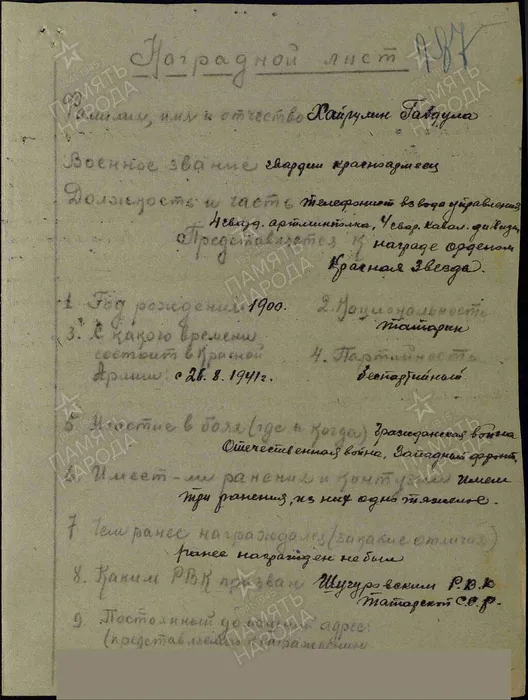 287
Наградной лист
Фамилия, имя и отчество Хайрулин Габдула
Военное звание гвардии красноармеец
Должность и часть телефонист взвода управления
4 гвард. артминполка, 4 гвар. кавал. дивизии
Представляется к награде орденом
Красная Звезда.
1. Год рождения 1900. 2. Национальность
татарин
3. С какого времени
состоит в Красной 4. Партийность
Армии с 26.8.1941г. беспартийный
5 Участие в боях (где и когда) Гражданская война
Отечественная война, Западный фронт,
6 Имеет-ли ранения и контузии имеет
три ранения, из них одно тяжелое.
7 Чем ранее награждался (за какие отличия)
ранее награжден не был
8. Каким РВК призван Шугуровским Р.В.К
Татарской С.С.Р.
9. Постоянный домашний адрес
(представляемого к награждению
ПАМЯТЬ НАРОДА